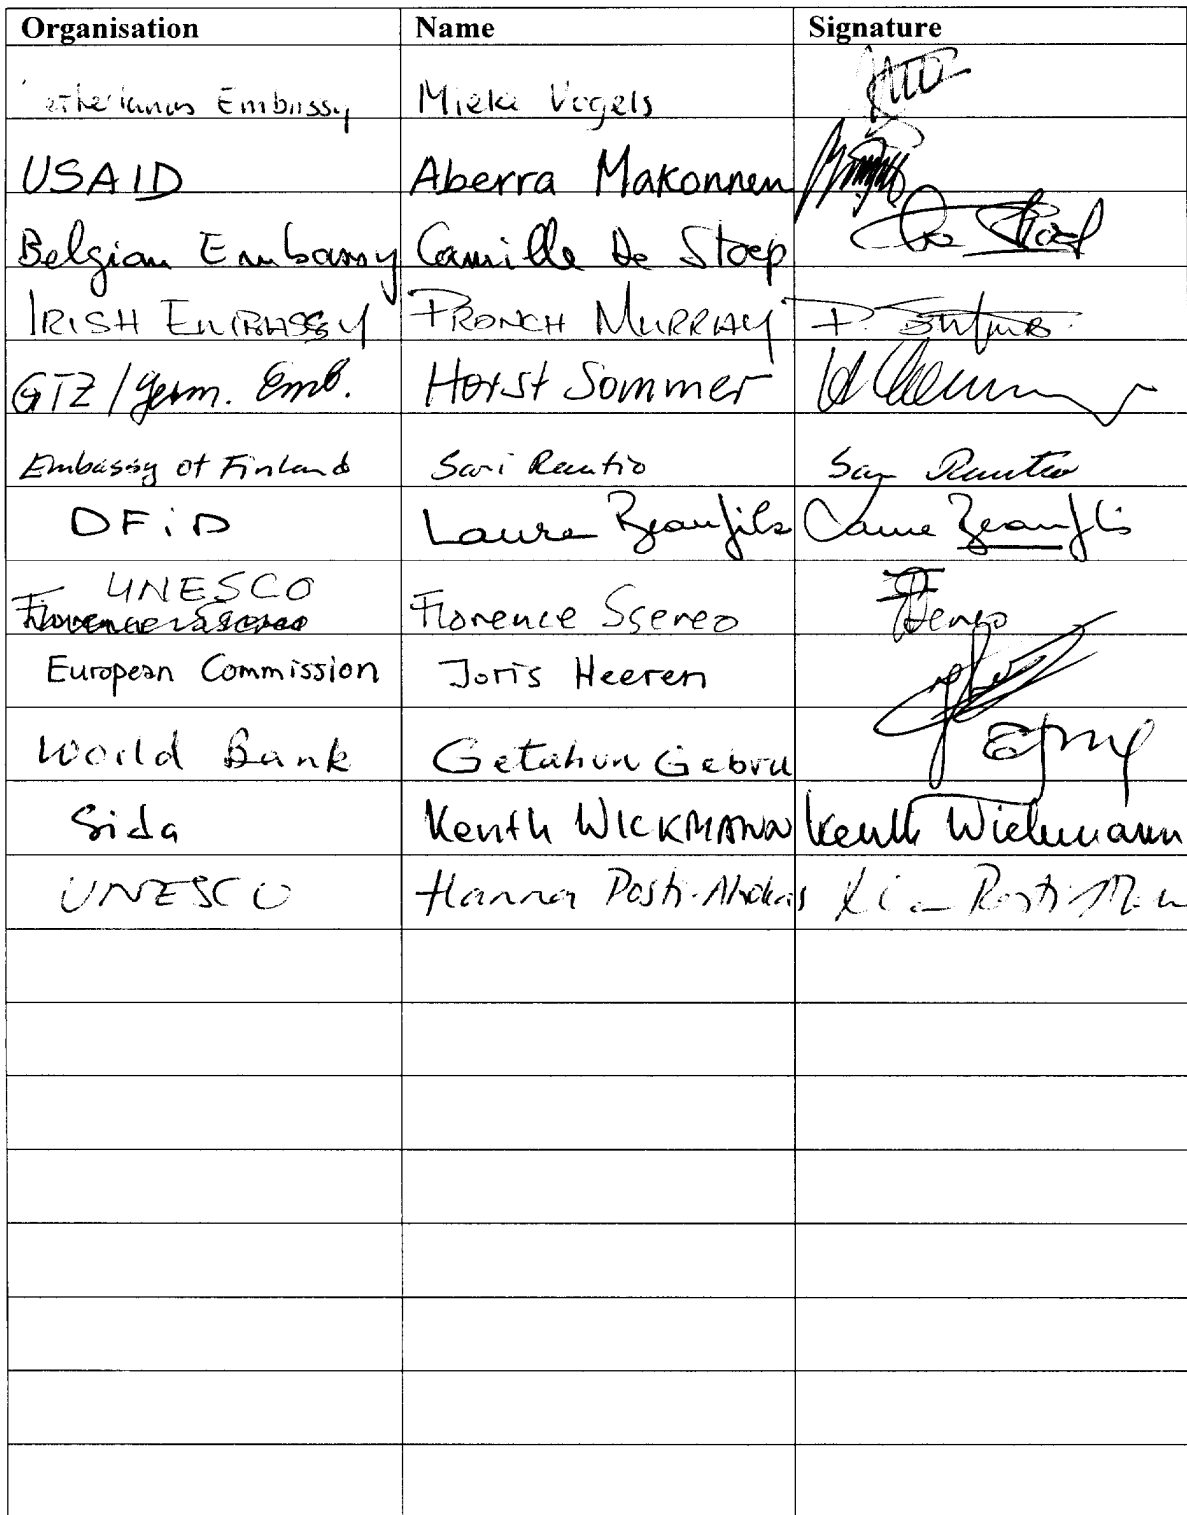 Organisation Name Signature
Embassy Mieke Vogels
USAID Aberra Makonnen
Belgian Embassy Camille De Stoop
IRISH EMBASSY MURRAY
GTZ / Germ. Emb. Horst Sommer
Embassy of Finland Sari Rautio Sari Rautio
DFiD Laure Beaufils Laure Beaufils
UNESCO
Florence Ssereo Florence Ssereo
European Commission Joris Heeren
World Bank Getahun Gebru
Sida Kenth WICKMANN Kenth Wickmann
UNESCO Hanna